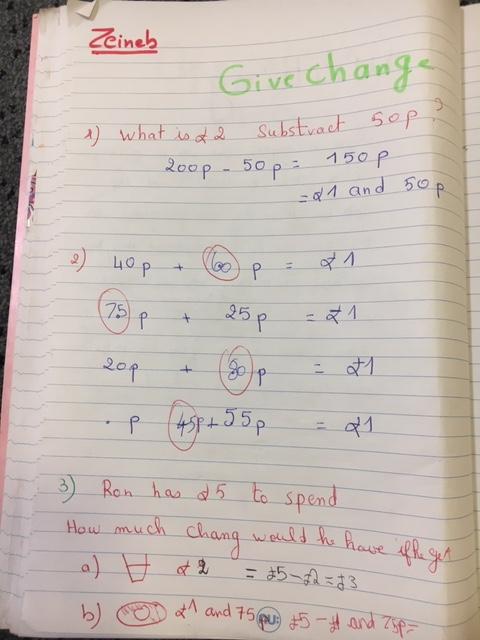 Zeineb
Give change
1) What is £2 substract 50p ?
200p - 50p = 150p
= £1 and 50p
2) 40p + 60 p = £1
75 p + 25p = £1
20p + 80 p = £1
. p 45p + 55p = £1
3) Ron has £5 to spend
How much chang would he have if he get
a) £2 = £5 - £2 = £3
b) £1 and 75 £5 - £1 and 75p =